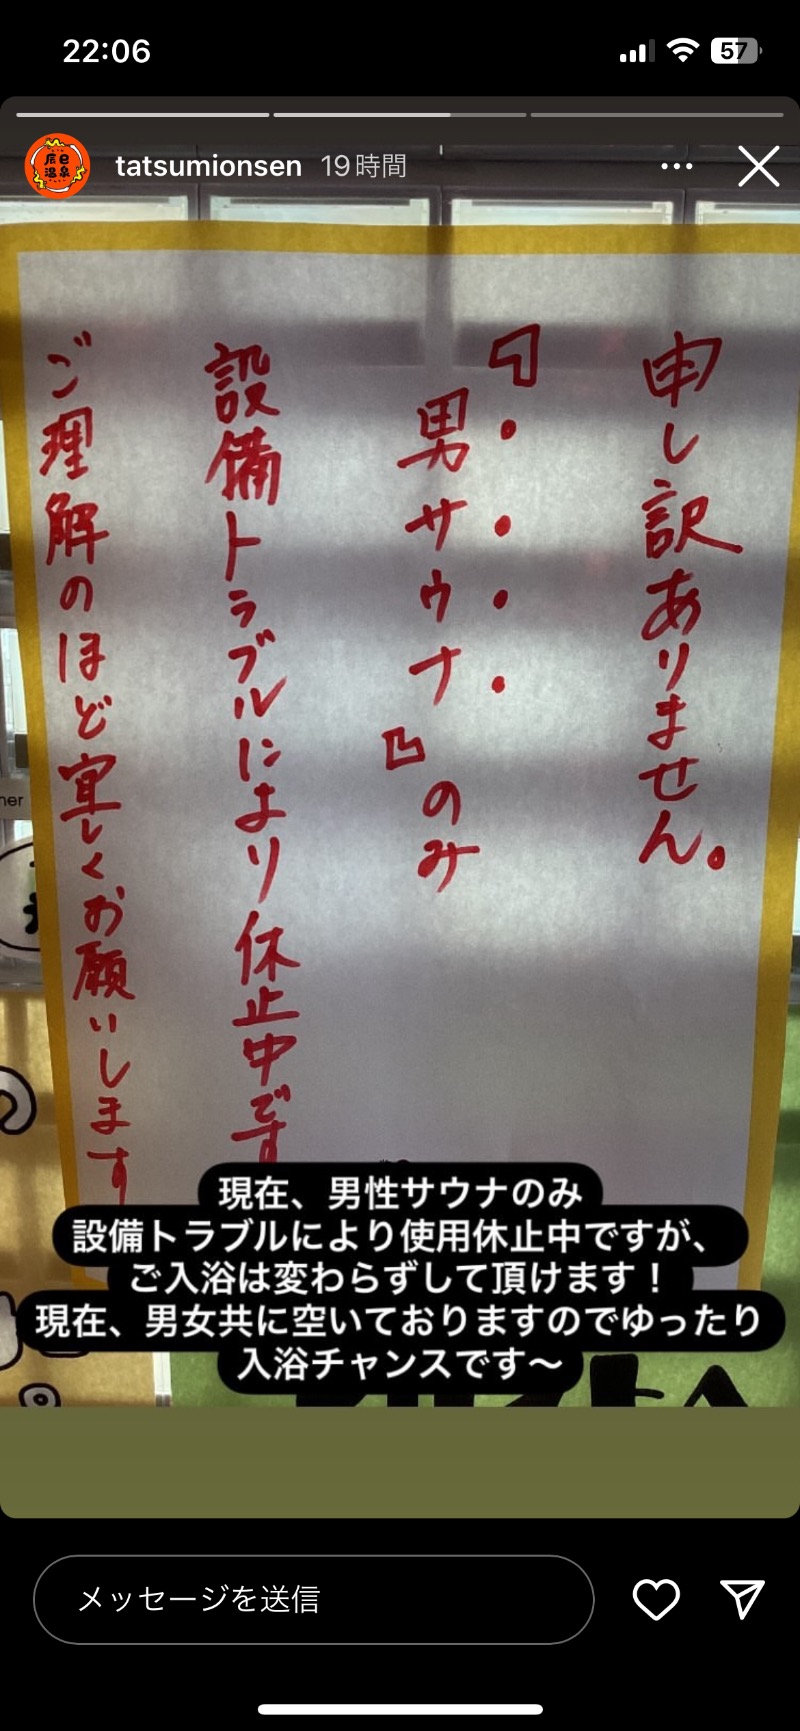 22:06
57
辰巳
温泉
tatsumionsen 19時間
申し訳ありません。
『男サウナ』のみ
設備トラブルにより休止中です
ご理解のほど宜しくお願いします
ner
現在、男性サウナのみ
設備トラブルにより使用休止中ですが、
ご入浴は変わらずして頂けます！
現在、男女共に空いておりますのでゆったり
入浴チャンスです〜
メッセージを送信